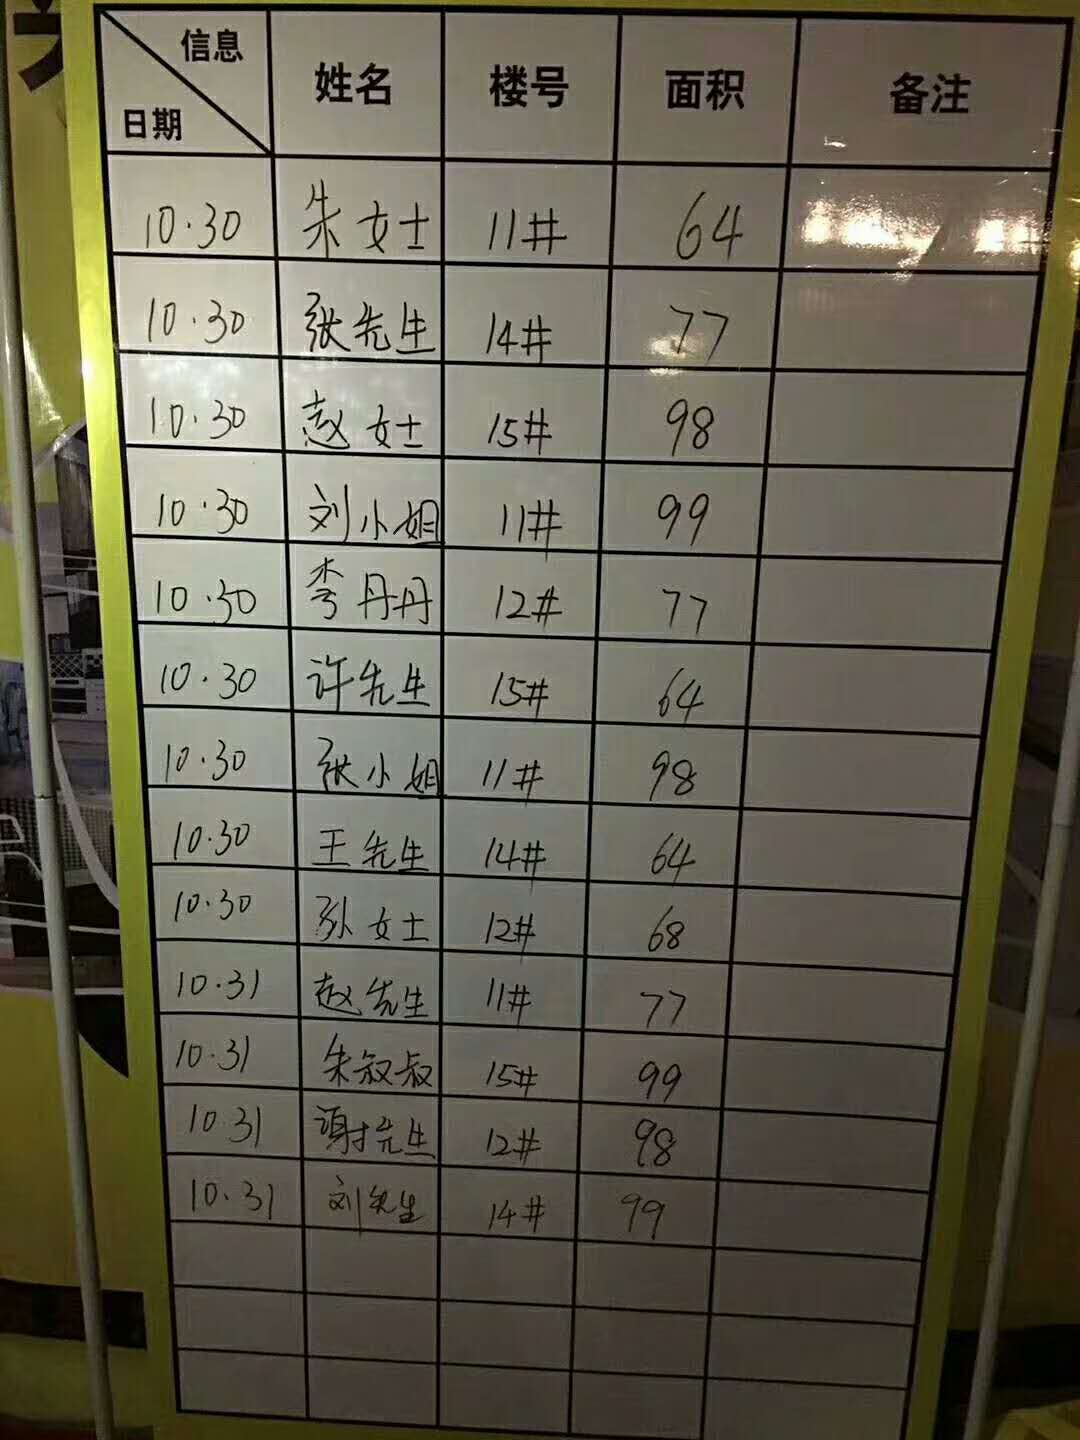 信息
日期 姓名 楼号 面积 备注
10.30 朱女士 11# 64
10.30 张先生 14# 77
10.30 赵女士 15# 98
10.30 刘小姐 11# 99
10.30 李丹丹 12# 77
10.30 许先生 15# 64
10.30 张小姐 11# 98
10.30 王先生 14# 64
10.30 孙女士 12# 68
10.31 赵先生 11# 77
10.31 朱叔叔 15# 99
10.31 谢先生 12# 98
10.31 刘先生 14# 99